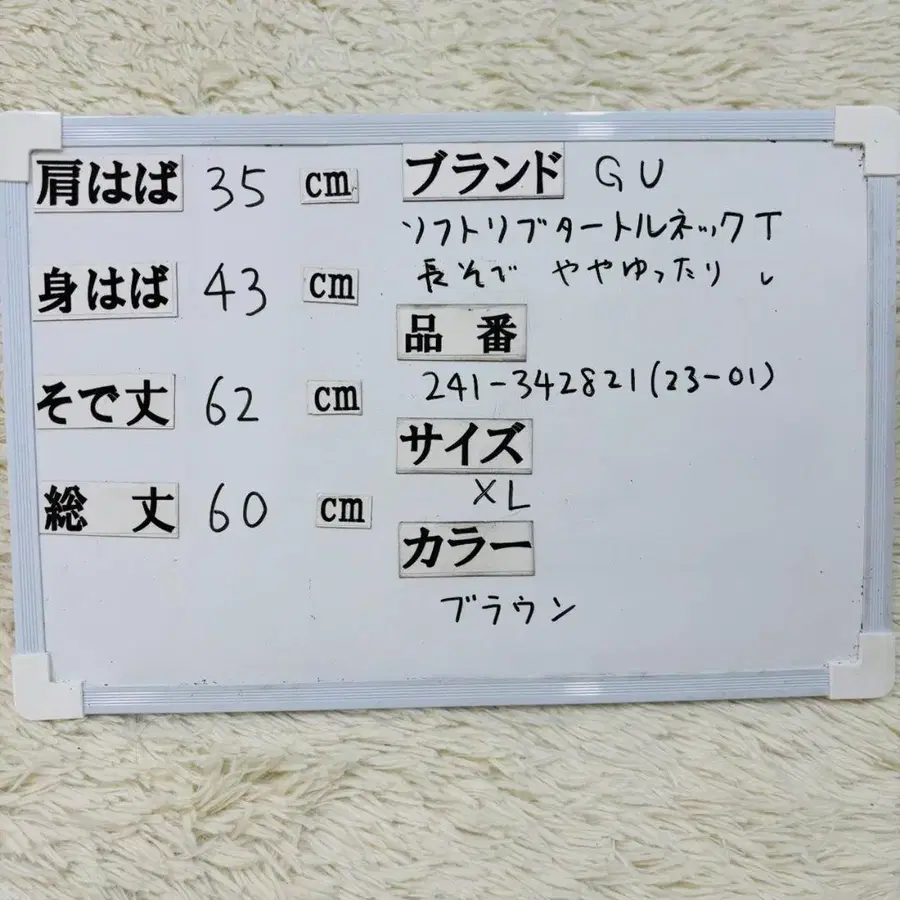 肩はば 35 cm
身はば 43 cm
そで丈 62 cm
総丈 60 cm
ブランド GU
ソフトリブタートルネックT
長そで ややゆったり
品番
241-342821(23-01)
サイズ
XL
カラー
ブラウン